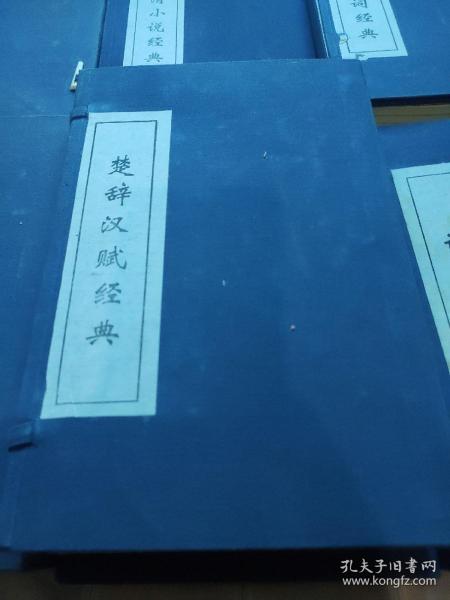 小说经典
词经典
楚辞汉赋经典
孔夫子旧书网
www.kongfz.com